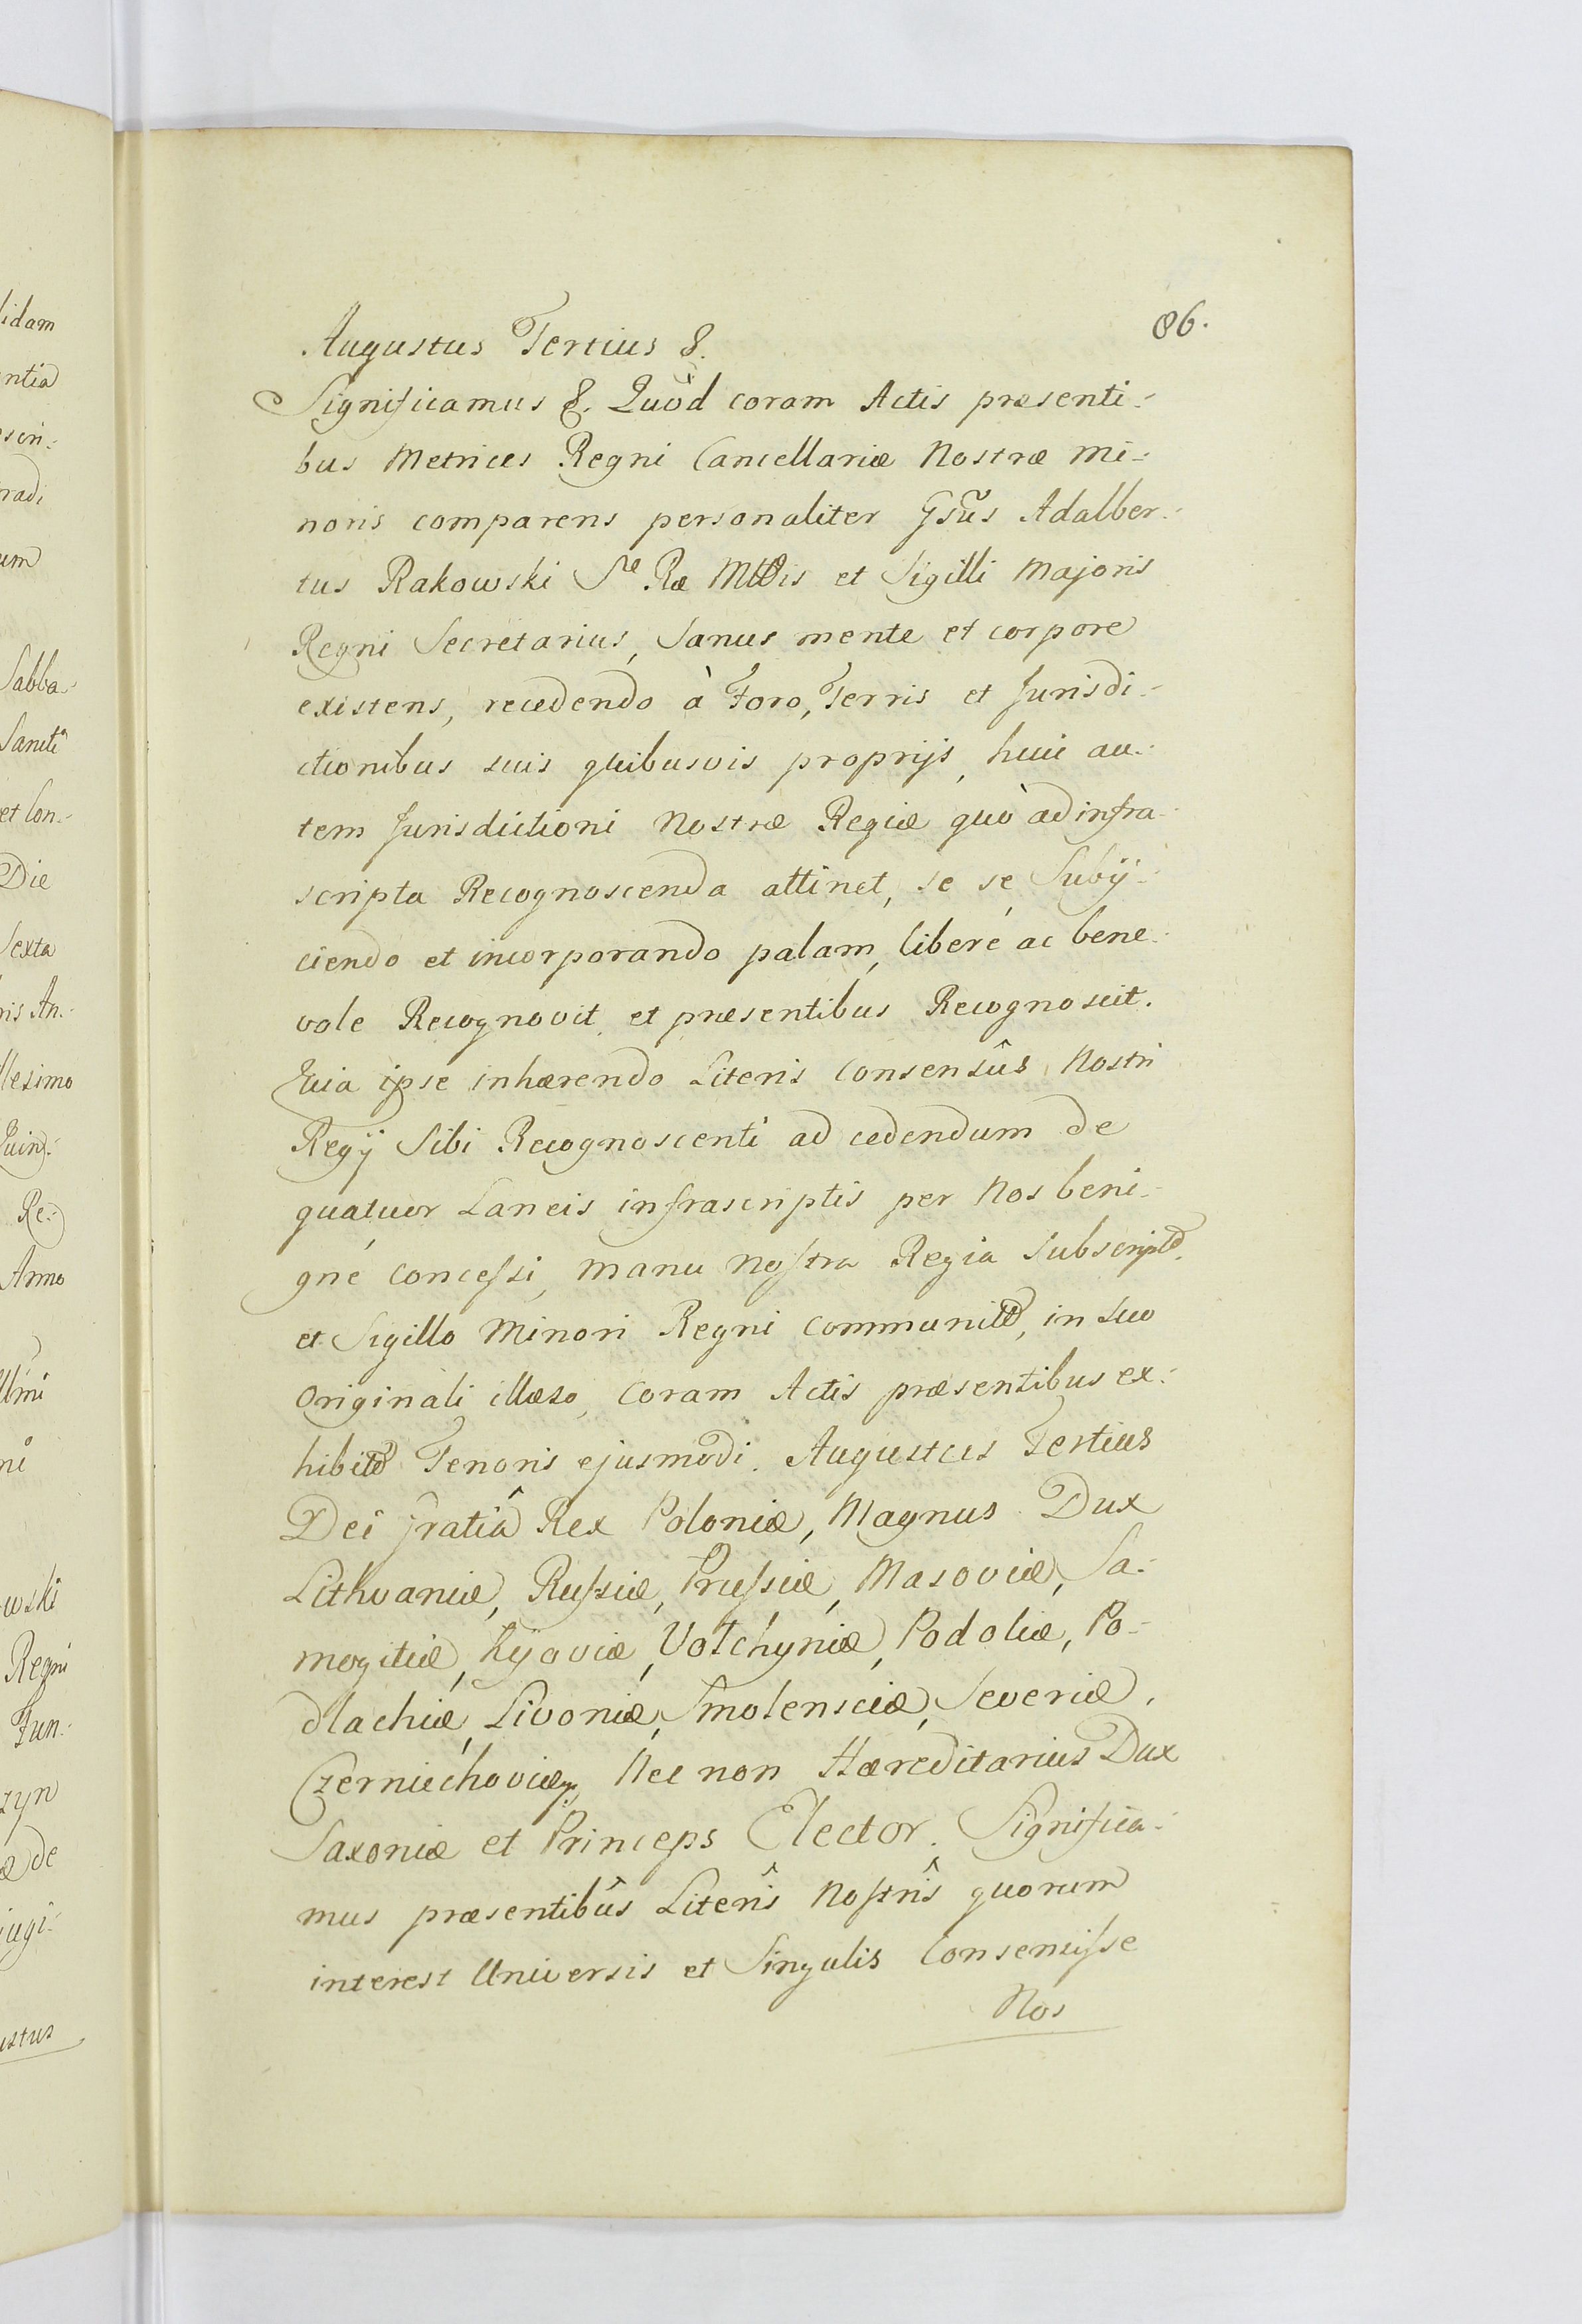 86.
Augustus Tertius &.
Significamus &. Quòd coram Actis præsenti-
bus Metrices Regni Cancellariæ Nostræ mi-
noris comparens personaliter Gsũs Adalber-
tus Rakowski Sæ Ræ Mttis et Sigilli Majoris
Regni Secretarius, Sanus mente et corpore
existens, recedendo à Foro, Terris et Jurisdi-
ctionibus suis quibusvis proprijs, huic au-
tem Jurisdictioni Nostræ Regiæ quò ad infra-
scripta Recognoscenda attinet, se se Subij-
ciendo et incorporando palam, liberè ac bene-
vole Recognovit et præsentibus Recognoscit.
Quia ipse inhærendo Literis Consensûs Nostri
Regij Sibi Recognoscenti ad cedendum de
quatuor Laneis infrascriptis per Nos beni-
gnè concessi, manu Nostra Regia Subscript.
et Sigillo Minori Regni communit, in suo
Originali illæso, Coram Actis præsentibus ex-
hibit Tenoris ejusmodi. Augustus Tertius
Dei gratiâ Rex Poloniæ, Magnus Dux
Lithvaniæ, Russiæ, Prussiæ, Masoviæ, Sa-
mogitiæ, Kijoviæ, Volchyniæ, Podoliæ, Po-
dlachiæ, Livoniæ, Smolensciæ, Severiæ,
Czerniechoviæq, Nec non Hæreditarius Dux
Saxoniæ et Princeps Elector. Significa-
mus præsentibûs Literîs Nostrîs quorum
interest Universis et Singulis Consensisse
Nos
lidam
ntia
radi
um
Sabba-
et Con-
Die
Sexta
ris An-
llesimo
Re-
Anno
wski
Regni
Fun-
zyn
æ de
ustus